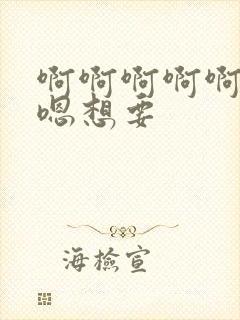 啊啊啊啊啊
嗯想要
海檢宣